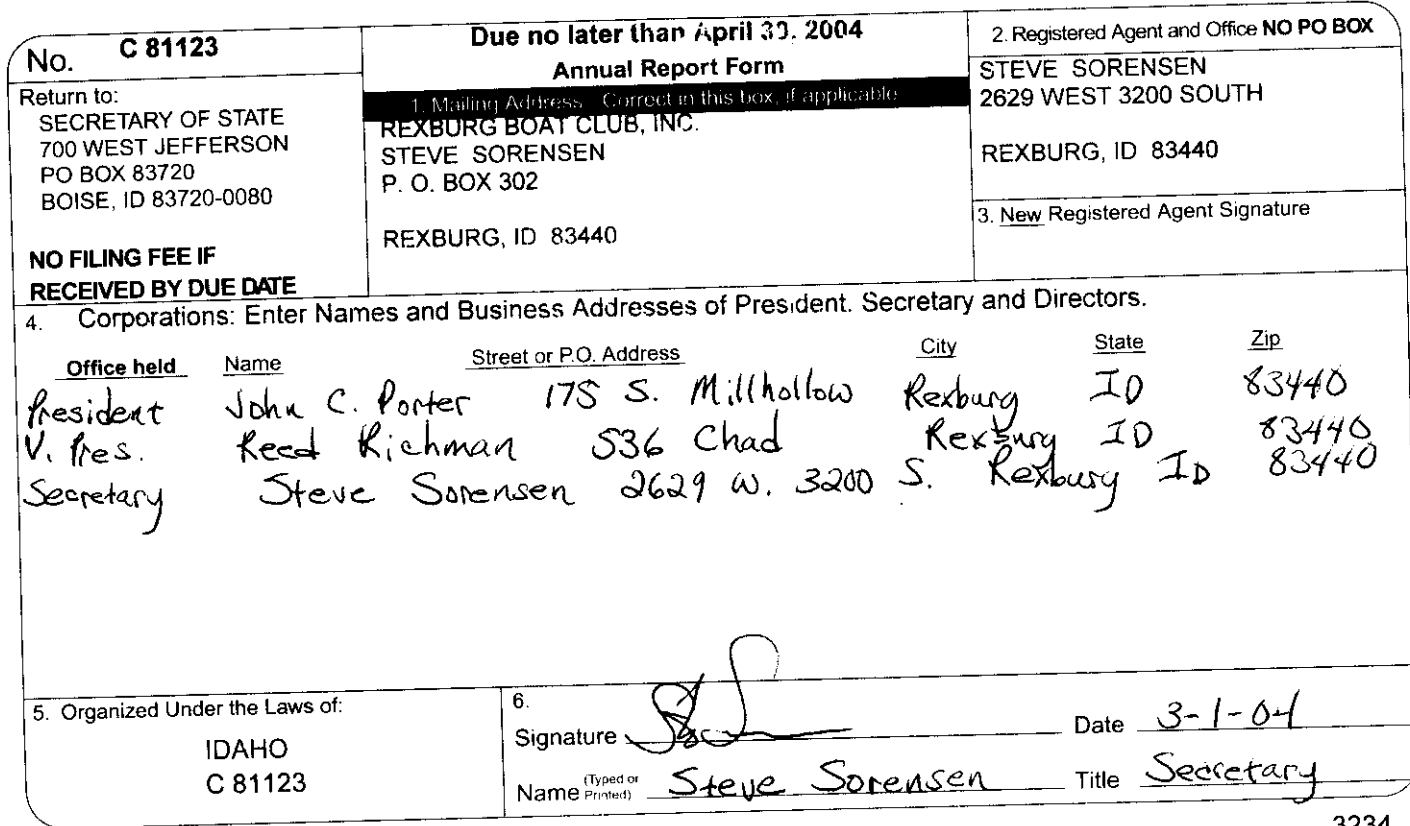 No. C 81123
Return to:
SECRETARY OF STATE
700 WEST JEFFERSON
PO BOX 83720
BOISE, ID 83720-0080
NO FILING FEE IF
RECEIVED BY DUE DATE
Due no later than April 30, 2004
Annual Report Form
1. Mailing Address Correct in this box, if applicable
REXBURG BOAT CLUB, INC.
STEVE SORENSEN
P. O. BOX 302
REXBURG, ID 83440
2. Registered Agent and Office NO PO BOX
STEVE SORENSEN
2629 WEST 3200 SOUTH
REXBURG, ID 83440
3. New Registered Agent Signature
4. Corporations: Enter Names and Business Addresses of President. Secretary and Directors.
Office held Name Street or P.O. Address City State Zip
President John C. Porter 175 S. Millhollow Rexburg ID 83440
V. Pres. Reed Richman 536 Chad Rexburg ID 83440
Secretary Steve Sorensen 2629 W. 3200 S. Rexburg ID 83440
5. Organized Under the Laws of:
IDAHO
C 81123
6.
Signature Date 3-1-04
Name (Typed or Printed) Steve Sorensen Title Secretary
3234